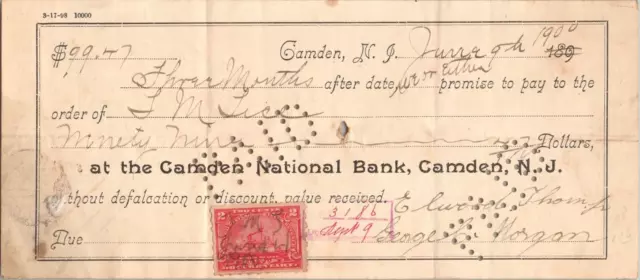 3-17-98 10000
$99.47 Camden, N. J. June 9th 1900 189
Three Months after date, we or either promise to pay to the
order of
Ninety Nine 47 Dollars,
at the Camden National Bank, Camden, N. J.
Without defalcation or discount, value received. Elwood
3186
Due Sept 9 George Morgan
2 2